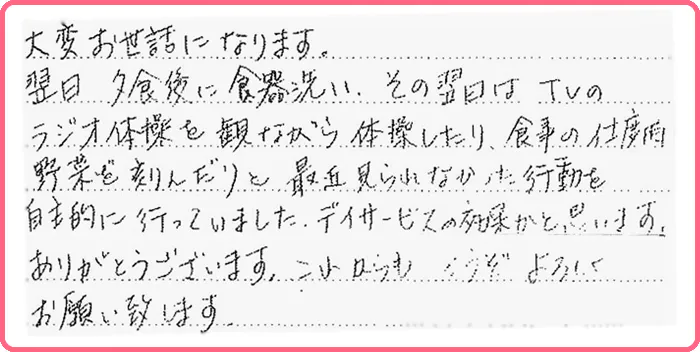 大変お世話になります。
翌日 夕食後に食器洗い、その翌日は TVの
ラジオ体操を観ながら体操したり、食事の仕度用
野菜を刻んだりと 最近見られなかった行動を
自主的に行っていました。デイサービスの効果かと思います。
ありがとうございます。これからも どうぞ よろしく
お願い致します。